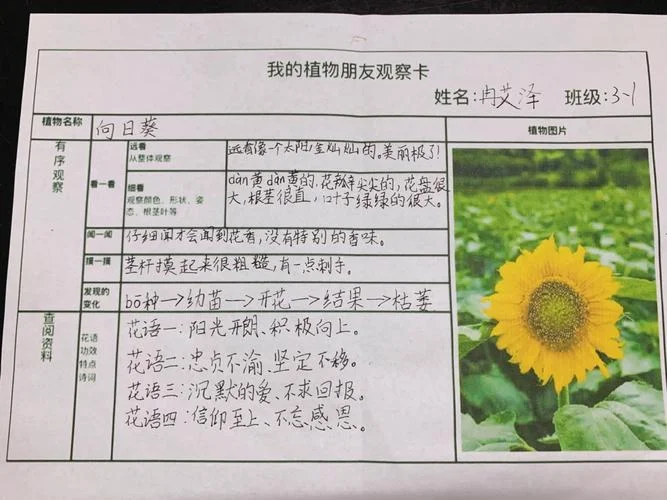 我的植物朋友观察卡
姓名:冉艾泽 班级:3-1
植物名称 向日葵 植物图片
有序观察
看一看
远看
从整体观察
远看像一个太阳,金灿灿的。美丽极了!
细看
观察颜色、形状、姿态、根茎叶等
dàn黄dàn黄的,花瓣尖尖的,花盘很
大,根茎很直,叶子绿绿的很大。
闻一闻 仔细闻才会闻到花香,没有特别的香味。
摸一摸 茎杆摸起来很粗糙,有一点刺手。
发现的变化 bō种→幼苗→开花→结果→枯萎
查阅资料
花语
功效
特点
诗词
花语一:阳光开朗、积极向上。
花语二:忠贞不渝、坚定不移。
花语三:沉默的爱、不求回报。
花语四:信仰至上、不忘感恩。